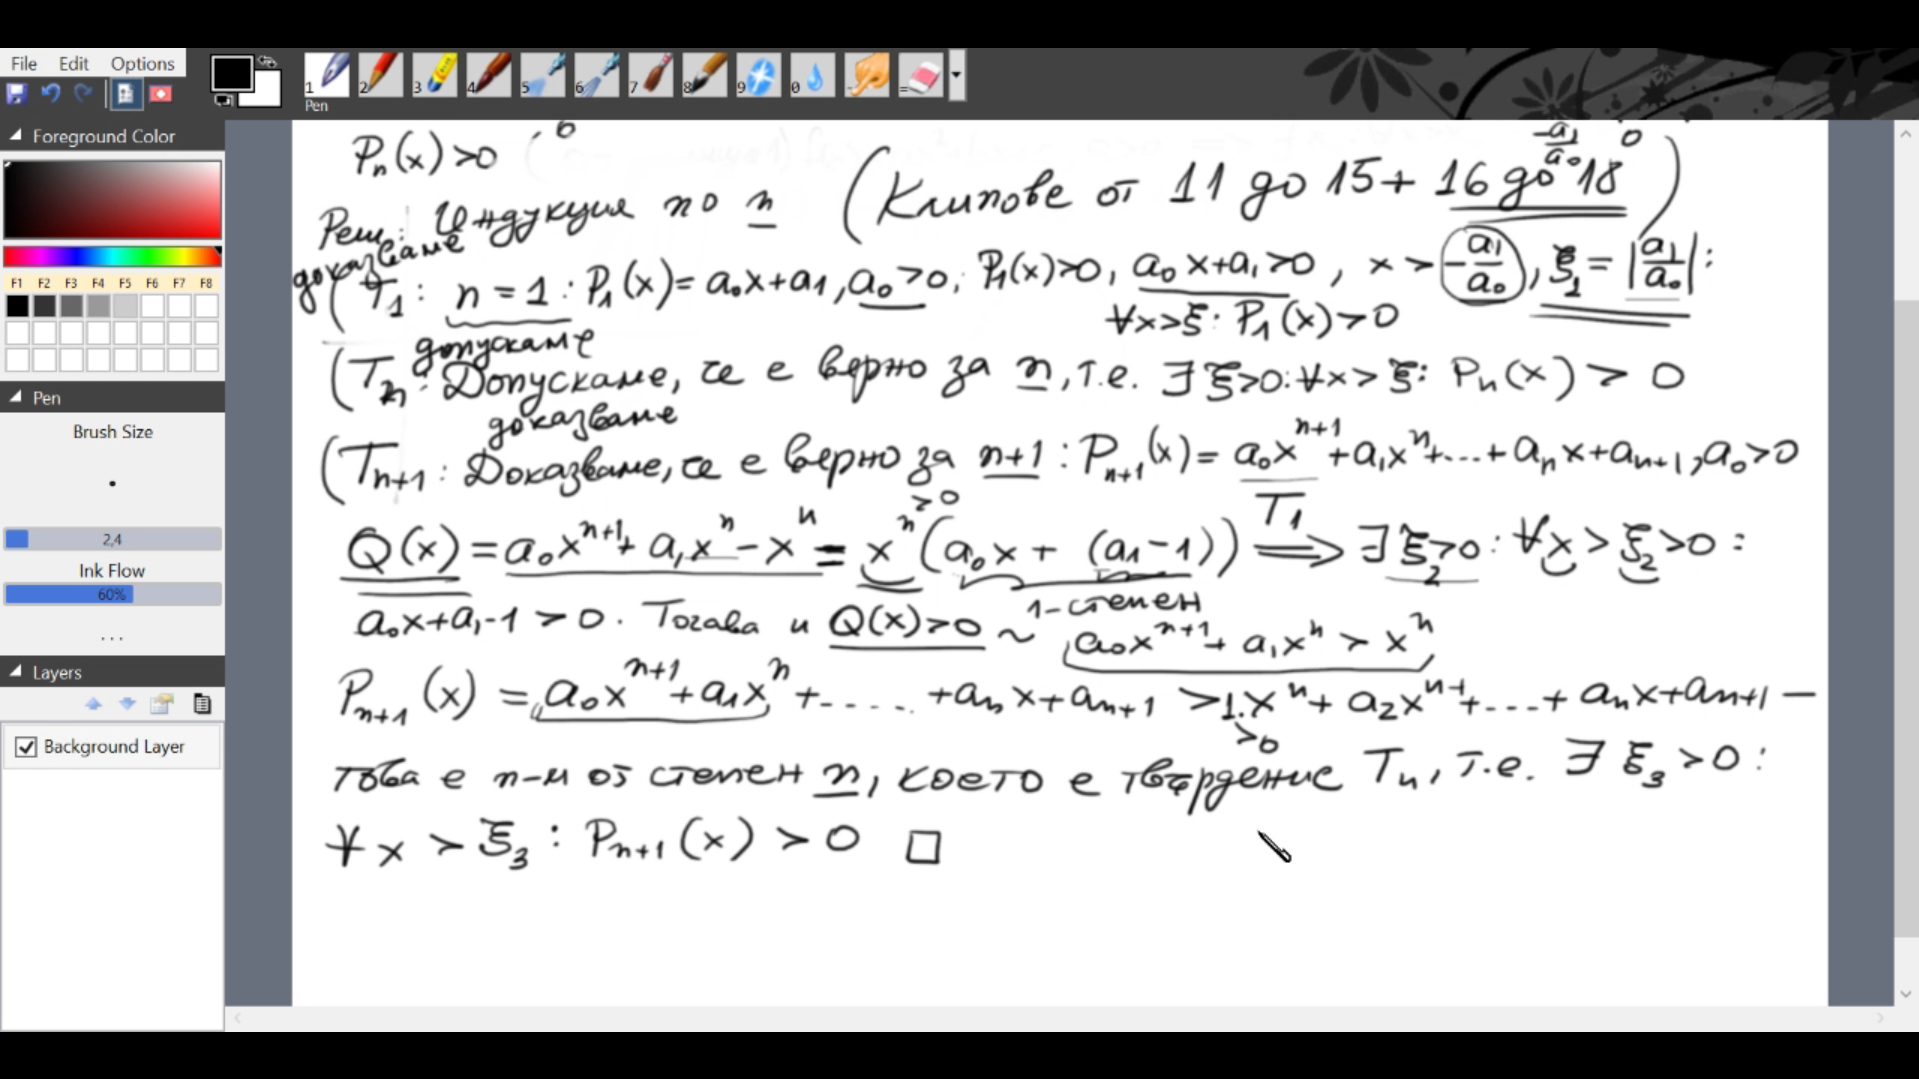 File Edit Options
1 2 3 4 5 6 7 8 9 0 - =
Pen
Foreground Color
F1 F2 F3 F4 F5 F6 F7 F8
Pen
Brush Size
2,4
Ink Flow
60%
...
Layers
Background Layer
Pₙ(x) > 0
Реш.: Индукция по n (Клипове от 11 до 15 + 16 до 18) -a₁/a₀ 0
доказваме
(T₁: n = 1: P₁(x) = a₀x + a₁, a₀ > 0; P₁(x) > 0, a₀x + a₁ > 0, x > -a₁/a₀, ξ₁ = |a₁/a₀|:
∀x > ξ: P₁(x) > 0
допускаме
(Tₙ: Допускаме, че е вярно за n, т.е. ∃ ξ > 0: ∀x > ξ: Pₙ(x) > 0
доказваме
(Tₙ₊₁: Доказваме, че е вярно за n+1: Pₙ₊₁(x) = a₀xⁿ⁺¹ + a₁xⁿ + ... + aₙx + aₙ₊₁, a₀ > 0
> 0
Q(x) = a₀xⁿ⁺¹ + a₁xⁿ - xⁿ = xⁿ(a₀x + (a₁-1)) T₁ ⟹ ∃ ξ₂ > 0: ∀x > ξ₂ > 0:
1-степен
a₀x + a₁ - 1 > 0. Тогава и Q(x) > 0 ~ a₀xⁿ⁺¹ + a₁xⁿ > xⁿ
Pₙ₊₁(x) = a₀xⁿ⁺¹ + a₁xⁿ + ..... + aₙx + aₙ₊₁ > 1.xⁿ + a₂xⁿ⁻¹ + ... + aₙx + aₙ₊₁ —
> 0
това е п-м от степен n, което е твърдение Tₙ, т.е. ∃ ξ₃ > 0:
∀x > ξ₃: Pₙ₊₁(x) > 0 □